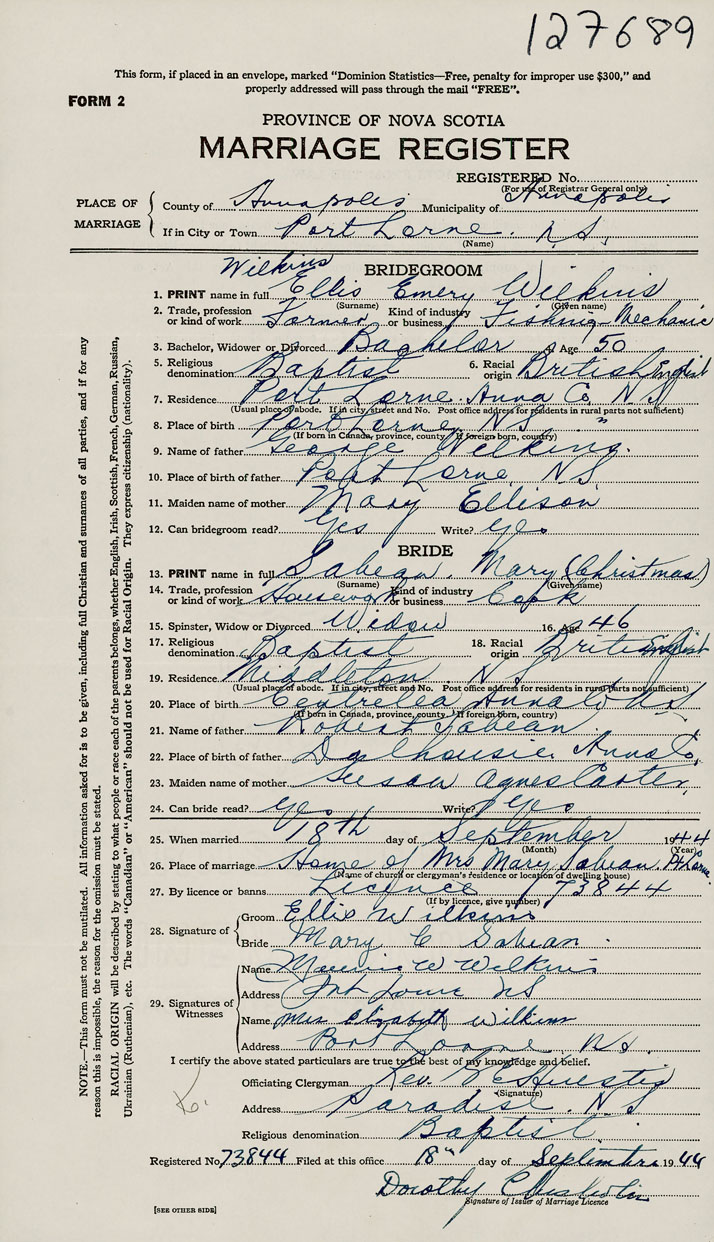 127689
This form, if placed in an envelope, marked "Dominion Statistics—Free, penalty for improper use $300," and
properly addressed will pass through the mail "FREE".
FORM 2
PROVINCE OF NOVA SCOTIA
MARRIAGE REGISTER
REGISTERED No.
(For use of Registrar General only)
PLACE OF MARRIAGE
County of Annapolis Municipality of Annapolis
If in City or Town Port Lorne. N.S.
(Name)
BRIDEGROOM
Wilkins
1. PRINT name in full Ellis Emery Wilkins
(Surname) (Given name)
2. Trade, profession or kind of work Farmer Kind of industry or business Fishing Mechanic
3. Bachelor, Widower or Divorced Bachelor Age 50
5. Religious denomination Baptist 6. Racial origin British English
7. Residence Port Lorne Anna Co NS
(Usual place of abode. If in city, street and No. Post office address for residents in rural parts not sufficient)
8. Place of birth Port Lorne NS "
(If born in Canada, province, county. If foreign born, country)
9. Name of father George Wilkins.
10. Place of birth of father Port Lorne, NS
11. Maiden name of mother Mary Ellison
12. Can bridegroom read? Yes Write? Yes
BRIDE
13. PRINT name in full Sabean. Mary (Christmas)
(Surname) (Given name)
14. Trade, profession or kind of work Housework Kind of industry or business Cook
15. Spinster, Widow or Divorced Widow 16. Age 46
17. Religious denomination Baptist 18. Racial origin British English
19. Residence Middleton. N.S
(Usual place of abode. If in city, street and No. Post office address for residents in rural parts not sufficient)
20. Place of birth Centrelea Anna Co NS
(If born in Canada, province, county. If foreign born, country)
21. Name of father Robert Sabean
22. Place of birth of father Dalhousie Anna Co,
23. Maiden name of mother Susan Agnes Carter
24. Can bride read? Yes Write? Yes
25. When married 18th day of September 1944
(Month) (Year)
26. Place of marriage Home of Mrs Mary Sabean. Pt Lorne
(Name of church or clergyman's residence or location of dwelling house)
27. By licence or banns Licence 73844
(If by licence, give number)
28. Signature of
Groom Ellis Wilkins
Bride Mary C Sabean
29. Signatures of Witnesses
Name W Wilkins
Address Port Lorne NS
Name Mrs Elizabeth Wilkins
Address Port Lorne N.S.
I certify the above stated particulars are true to the best of my knowledge and belief.
Officiating Clergyman Rev.
(Signature)
Address Paradise. N.S
Religious denomination Baptist.
Registered No. 73844 Filed at this office 18" day of September 1944
Dorothy Chisholm
Signature of Issuer of Marriage Licence
[SEE OTHER SIDE]
NOTE.—This form must not be mutilated. All information asked for is to be given, including full Christian and surnames of all parties, and if for any
reason this is impossible, the reason for the omission must be stated.
RACIAL ORIGIN will be described by stating to what people or race each of the parents belongs, whether English, Irish, Scottish, French, German, Russian,
Ukrainian (Ruthenian), etc. The words "Canadian" or "American" should not be used for Racial Origin. They express citizenship (nationality).